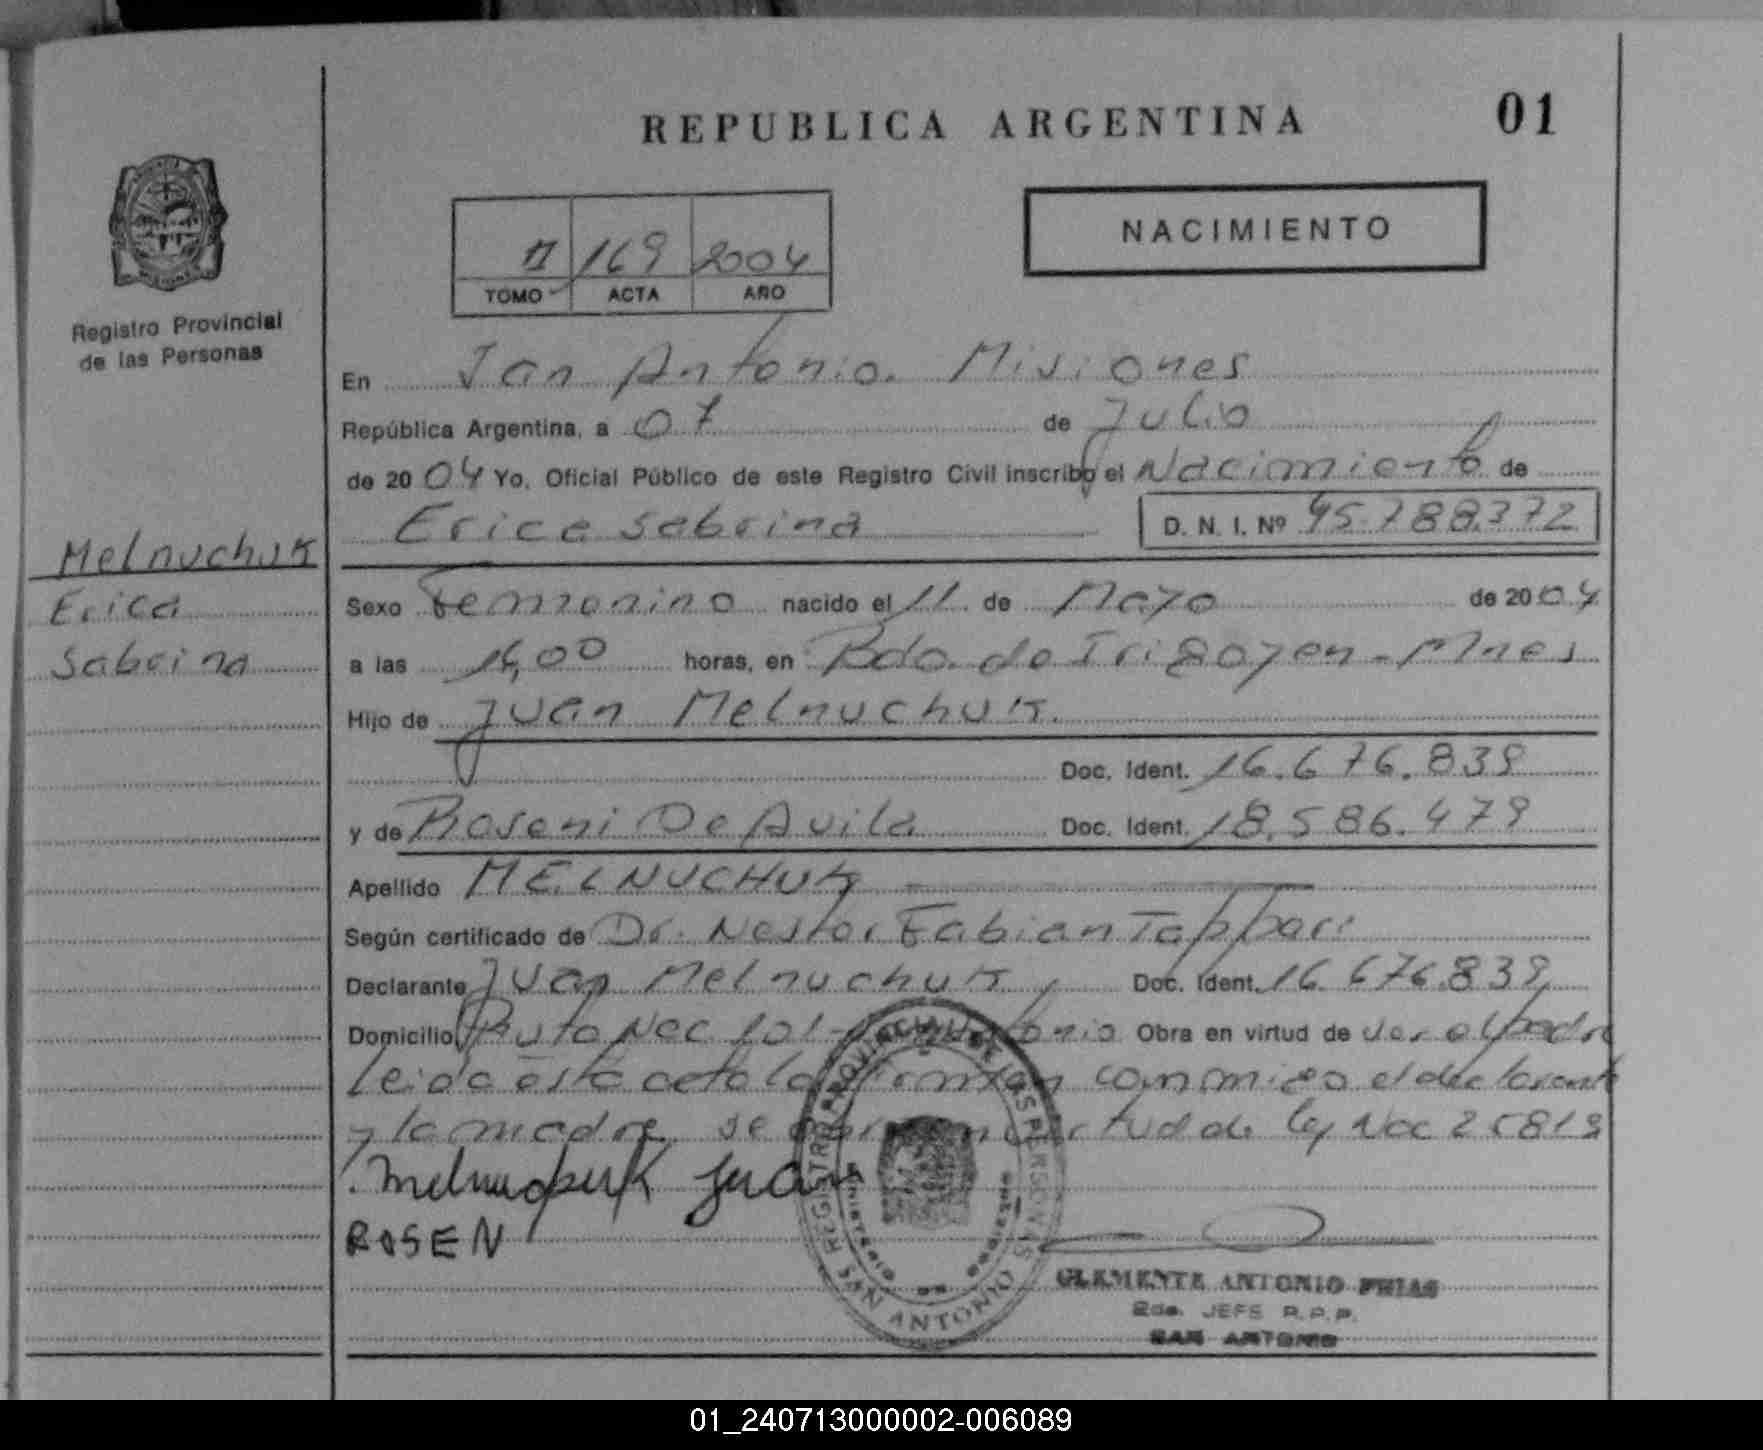 REPUBLICA ARGENTINA
01
Registro Provincial
de las Personas
II 169 2004
TOMO ACTA AÑO
NACIMIENTO
En San Antonio. Misiones
República Argentina, a 07 de Julio
de 2004 Yo, Oficial Público de este Registro Civil inscribo el Nacimiento de
Erica Sabrina D. N. I. Nº 45.788.372
Melnuchuk
Erica
Sabrina
Sexo Femenino nacido el 11 de Mayo de 2004
a las 16,00 horas, en Bdo. de Irigoyen - Mnes
Hijo de Juan Melnuchuk.
Doc. Ident. 16.676.839
y de Roseni De Avila Doc. Ident. 18.586.479
Apellido MELNUCHUK
Según certificado de Dr. Nestor Fabian Tappari
Declarante Juan Melnuchuk Doc. Ident. 16.676.839
Domicilio Ruta Nac 101 - Antonio Obra en virtud de ser el padre
Leida esta acta la firman conmigo el declarante
y la madre, se en virtud de ley Nac 25819
Melnuchuk Juan
ROSEN
REGISTRO PROVINCIAL DE LAS PERSONAS
SAN ANTONIO
CLEMENTE ANTONIO FRIAS
2do. JEFE R.P.P.
SAN ANTONIO
01_240713000002-006089